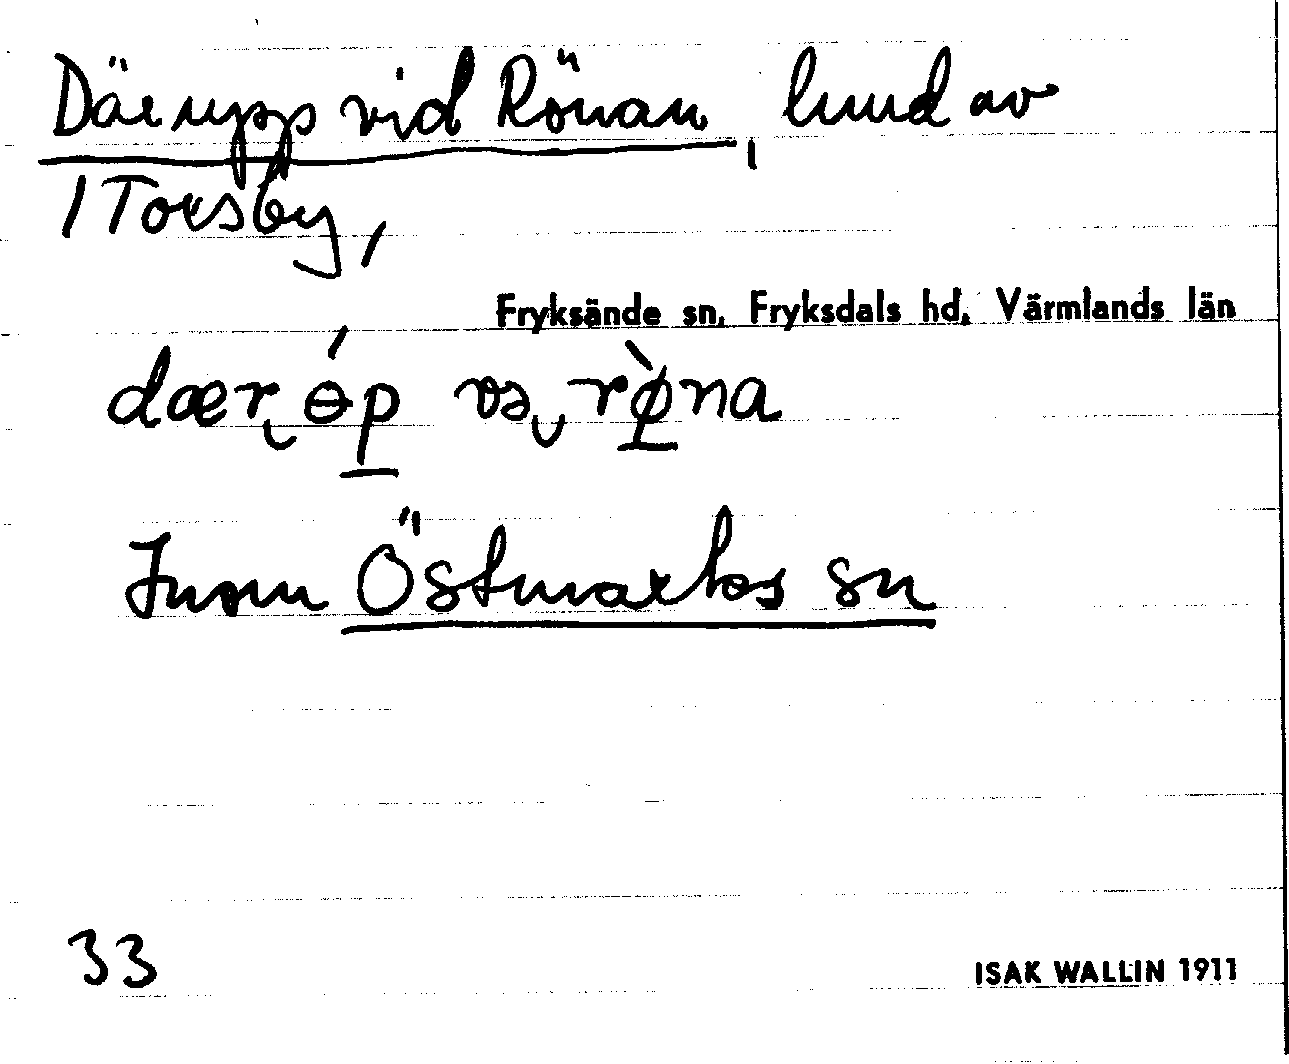 Därupp vid Rönan, lund av
1 Torsby,
Fryksände sn, Fryksdals hd, Värmlands län
dærɵ́p və rø̀na
Inom Östmarks sn
33
ISAK WALLIN 1911